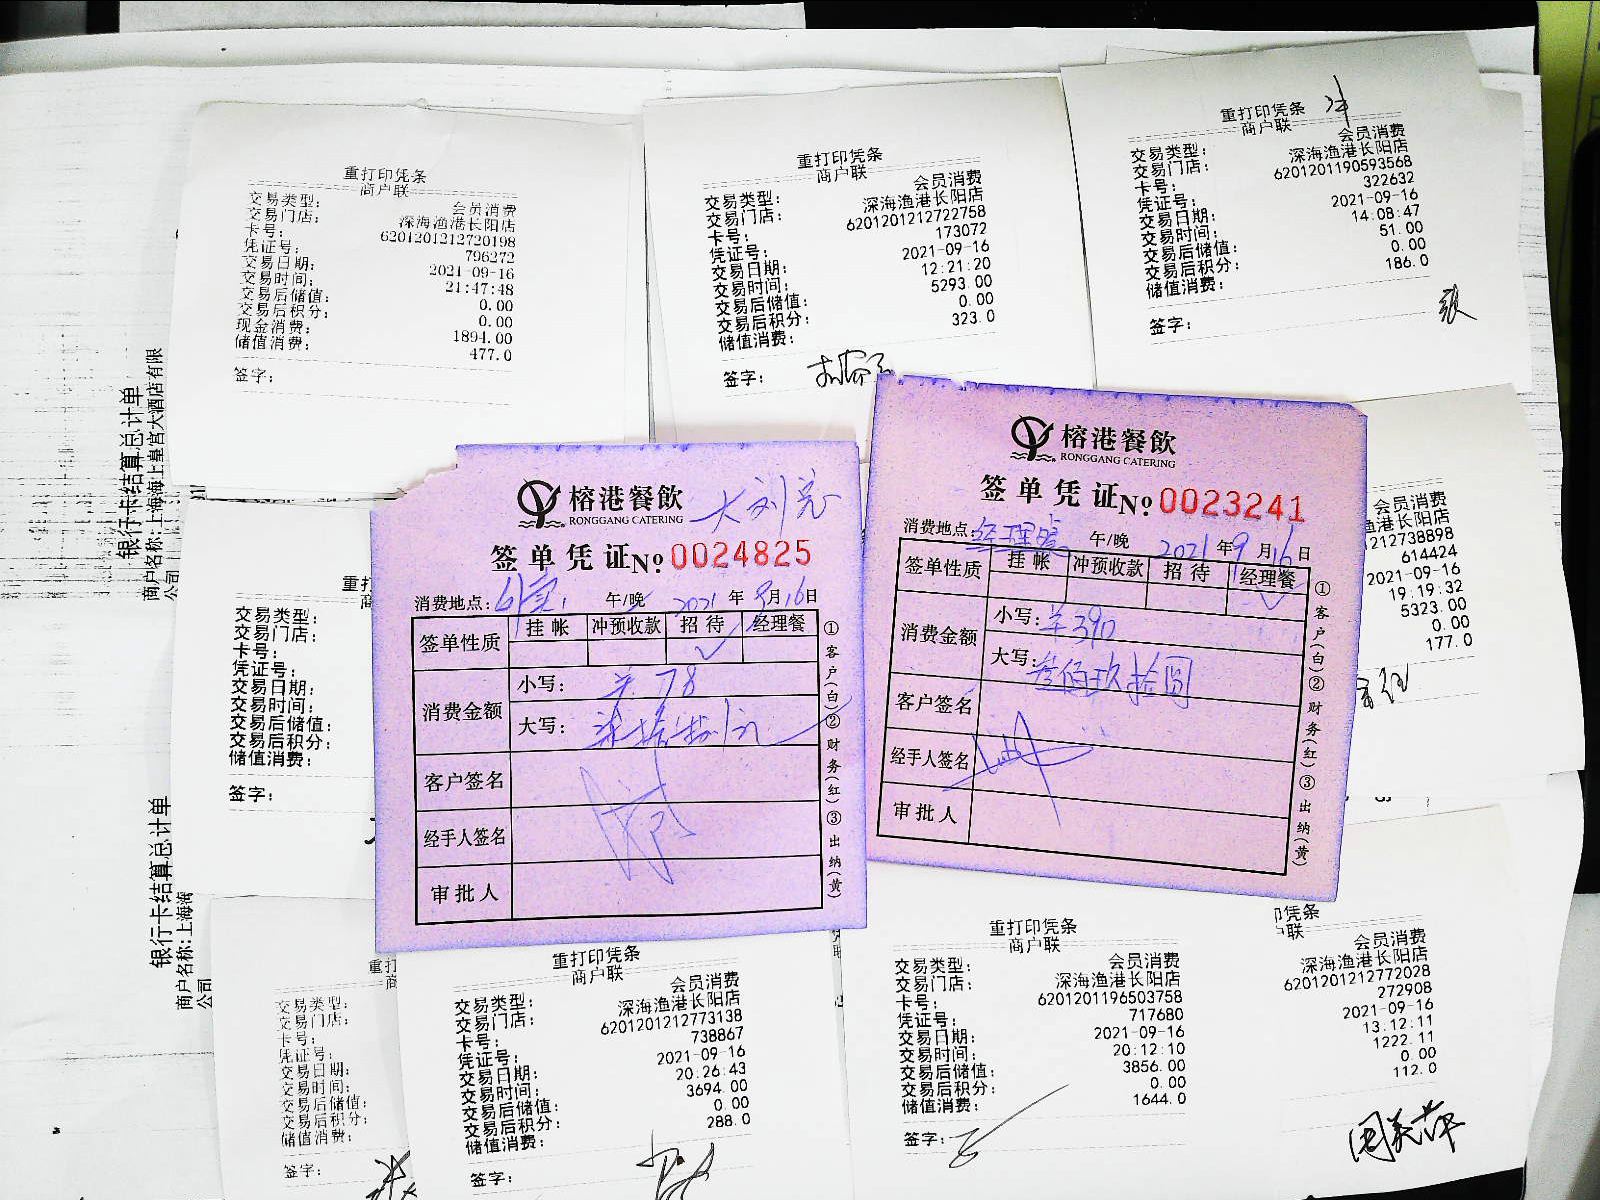 重打印凭条
商户联
交易类型: 会员消费
交易门店: 深海渔港长阳店
卡号: 6201201212720198
凭证号: 796272
交易日期: 2021-09-16
交易时间: 21:47:48
交易后储值: 0.00
交易后积分: 0.00
现金消费: 1894.00
储值消费: 477.0
签字:
重打印凭条
商户联
交易类型: 会员消费
交易门店: 深海渔港长阳店
卡号: 6201201212722758
凭证号: 173072
交易日期: 2021-09-16
交易时间: 12:21:20
交易后储值: 5293.00
交易后积分: 0.00
储值消费: 323.0
签字:
重打印凭条
商户联
交易类型: 会员消费
交易门店: 深海渔港长阳店
卡号: 6201201190593568
凭证号: 322632
交易日期: 2021-09-16
交易时间: 14:08:47
交易后储值: 51.00
交易后积分: 0.00
储值消费: 186.0
签字:
银行卡结算总计单
商户名称:上海海上皇宫大酒店有限
公司
榕港餐飲
RONGGANG CATERING
签单凭证 No 0024825
消费地点: 午/晚 2021 年 9月16日
签单性质 挂帐 冲预收款 招待 经理餐
消费金额 小写: 78
大写:
客户签名
经手人签名
审批人
①客户(白)②财务(红)③出纳(黄)
榕港餐飲
RONGGANG CATERING
签单凭证 No 0023241
消费地点: 经理餐 午/晚 2021 年 9 月 16 日
签单性质 挂帐 冲预收款 招待 经理餐
消费金额 小写: 390
大写: 叁佰玖拾圆
客户签名
经手人签名
审批人
①客户(白)②财务(红)③出纳(黄)
会员消费
渔港长阳店
1212738898
614424
2021-09-16
19:19:32
5323.00
0.00
177.0
重打
商
交易类型:
交易门店:
卡号:
凭证号:
交易日期:
交易时间:
交易后储值:
交易后积分:
储值消费:
签字:
银行卡结算总计单
商户名称:上海海
公司
重打
商
交易类型:
交易门店:
卡号:
凭证号:
交易日期:
交易时间:
交易后储值:
交易后积分:
储值消费:
签字:
重打印凭条
商户联
交易类型: 会员消费
交易门店: 深海渔港长阳店
卡号: 6201201212773138
凭证号: 738867
交易日期: 2021-09-16
交易时间: 20:26:43
交易后储值: 3694.00
交易后积分: 0.00
储值消费: 288.0
签字:
重打印凭条
商户联
交易类型: 会员消费
交易门店: 深海渔港长阳店
卡号: 6201201196503758
凭证号: 717680
交易日期: 2021-09-16
交易时间: 20:12:10
交易后储值: 3856.00
交易后积分: 0.00
储值消费: 1644.0
签字:
印凭条
户联
会员消费
深海渔港长阳店
6201201212772028
272908
2021-09-16
13:12:11
1222.11
0.00
112.0
周美萍